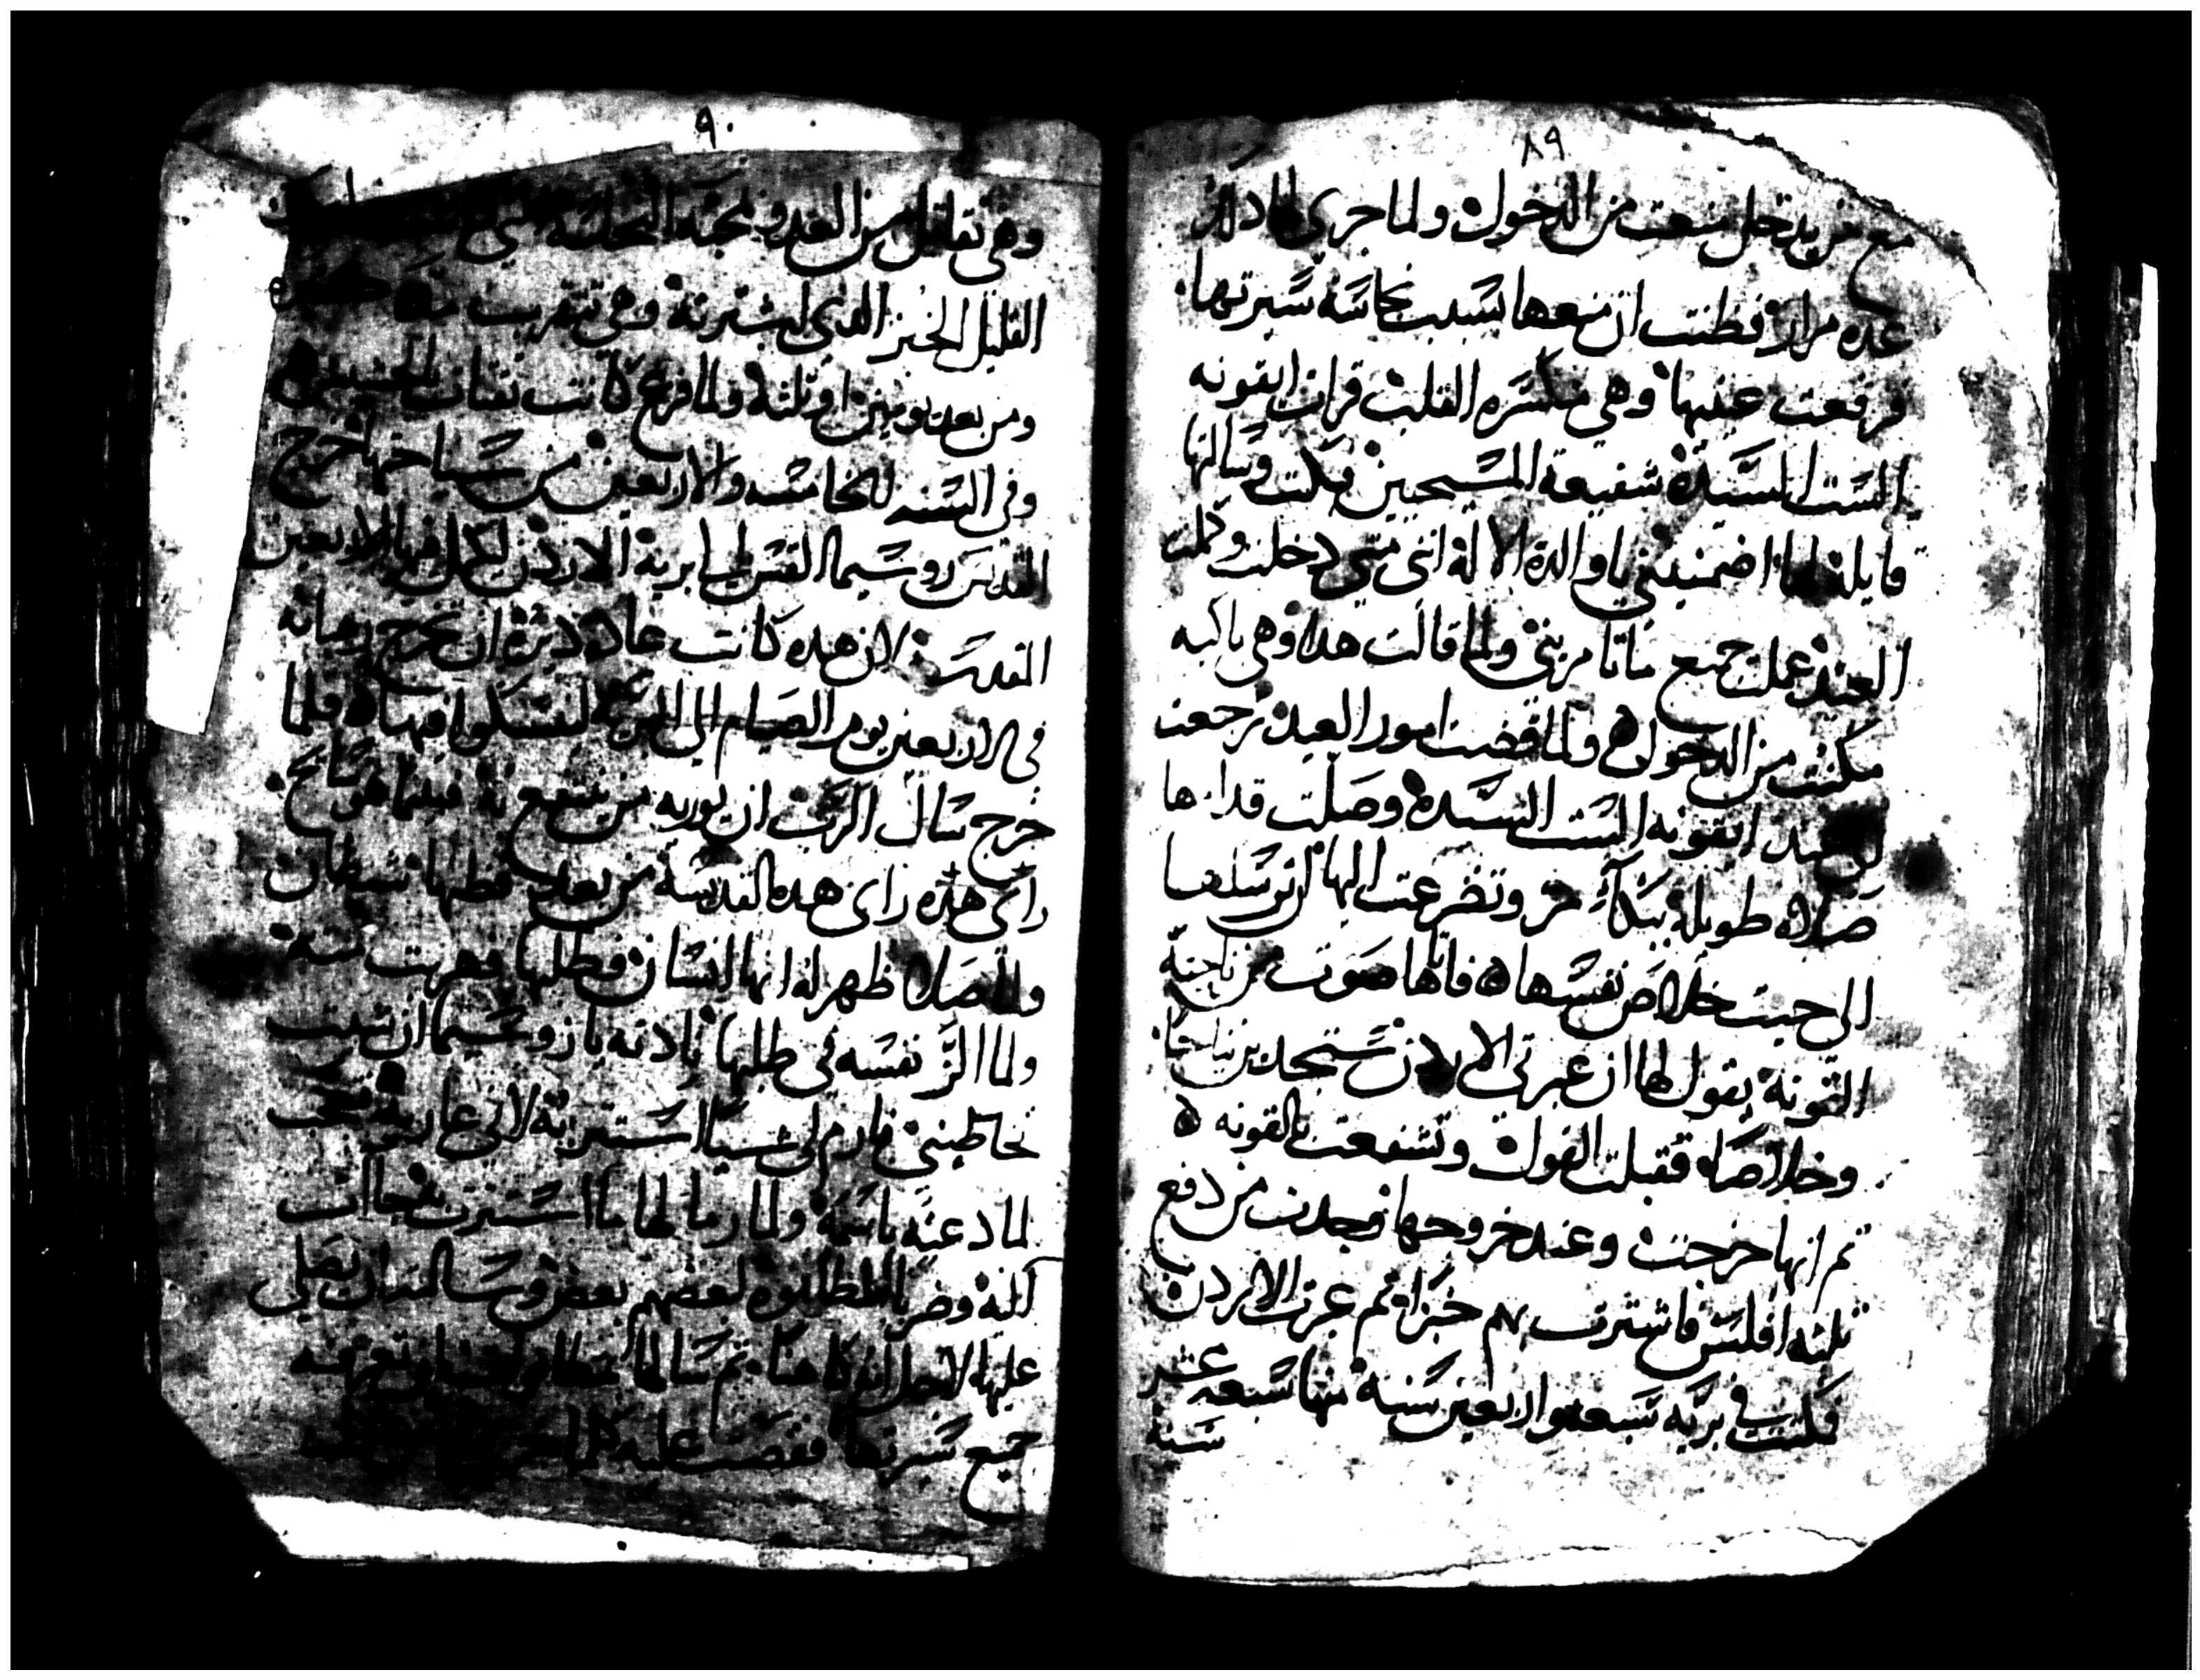 ٨٩
مع من يدخل منعت من الدخول ولما جرى لها دلك
عده مرار فظنت ان منعها بسبب نجاسة سيرتها
فرفعت عينيها وهي منكسره القلب قرات ايقونه
الست السيدة شفيعة المسيحيين فبكت وسالتها
قايلة لها اضمنيني يا والدة الالة انني متى دخلت وكملت
العيد عملت جميع ما تامريني ولما قالت هدا وهي باكيه
مكنت من الدخول ولما قضت امور العيد رجعت
ايقونه الست السيدة وصلت قدامها
صلاه طويلة ببكآء مر وتضرعت اليها ان ترسلها
الى حيت خلاص نفسها فاتاها صوت من ناحية
القونة يقول لها ان عبرتي الاردن ستجدين نياحا
وخلاصا فقبلت القول وتشفعت بالقونه
تم انها خرجت وعند خروجها وجدت من دفع
تلته افلس فاشترت بهم خبزا تم عبرت الاردن
فمكتت في بريه سبعه واربعين سنة منها سبعه عشر
سنة
٩٠
وهي تقاتل من العدو بمحبة
القليل الخبز الدي اشترته وهي تتقرب منه
ومن بعد يومين او تلته ولما فرغ كانت تقتات الحشيش
وفي السنه الخامسه والاربعين من سياحتها خرج
القديس زوسيما القس الى برية الاردن ليكمل فيها الاربعين
المقدسة لان هده كانت عادة ديرة ان تخرج رهبانه
في الاربعين يوم الصيام الى البريه لينسكوا فيها فلما
خرج سال الرب ان يوريه من ينتفع به فبينما هو سايح
راى هده راى هده القديسة من بعد فظنها شيطان
وبالصلاة ظهر له انها انسان فطلبها فهربت منه
ولما الز نفسه في طلبها نادته يا زوسيما ان شيت
تخاطبني فارم لي شيا استتر به لاني عاريه فتعجب
لما دعته باسمة ولما رما لها ما استترت به جاات
اليه وضربا المطانوه لبعضهم بعض وسالته ان يصلي
عليها لاجل انه كاهنا تم سالها
جميع سيرتها فقصت عليه كلما